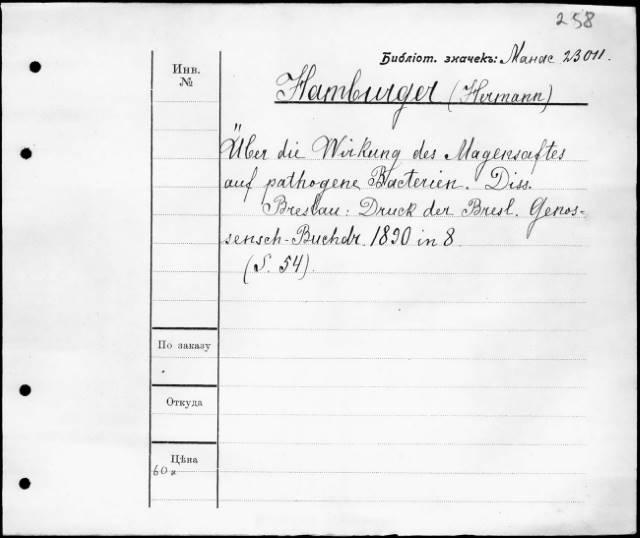 258
Библіот. значекъ: Манас 23011.
Инв.
№
Hamburger (Hermann)
Über die Wirkung des Magensaftes
auf pathogene Bacterien. Diss.
Breslau: Druck der Bresl. Genos-
sensch-Buchdr. 1890 in 8
(S. 54).
По заказу
Откуда
Цѣна
60